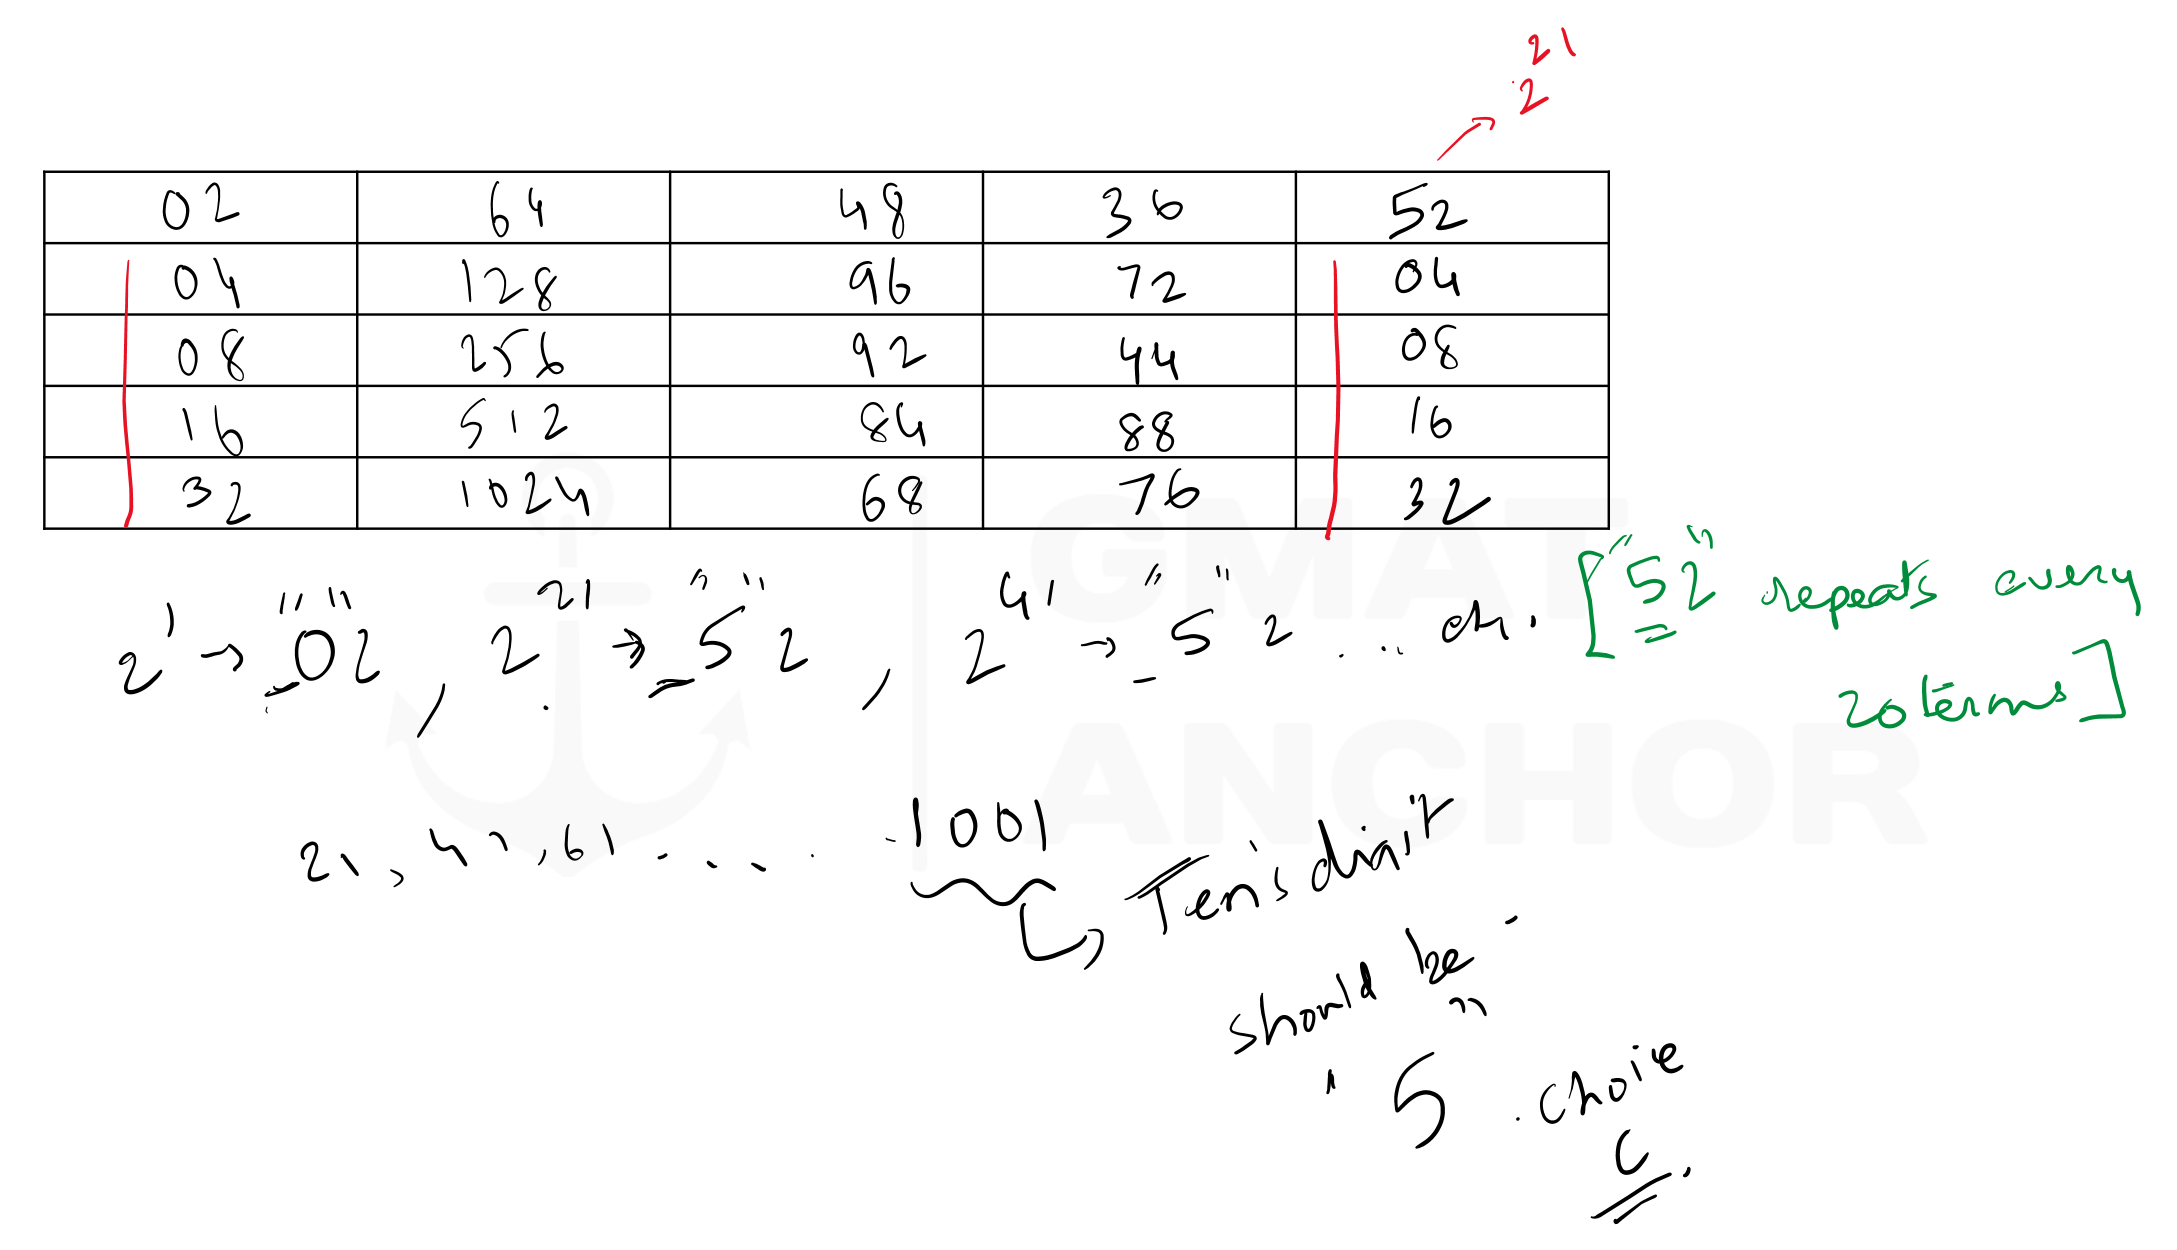 2²¹
02 64 48 36 52
04 128 96 72 04
08 256 92 44 08
16 512 84 88 16
32 1024 68 76 32
2¹ → "02", 2²¹ → "52", 2⁴¹ → "52" ... etc. ["52" repeats every
20 terms]
21, 41, 61 ..... 1001
Ten's digit
should be
"5". Choice
C.
GMAT
ANCHOR